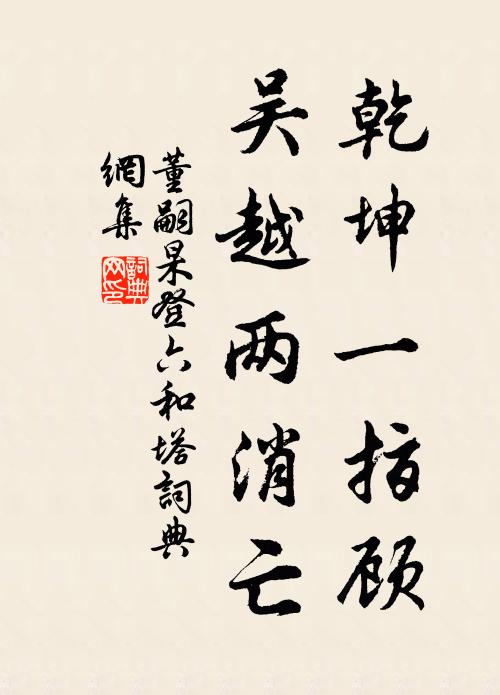 乾坤一指顾
吴越两消亡
董嗣杲登六和塔詞典
網集
詞典
网印